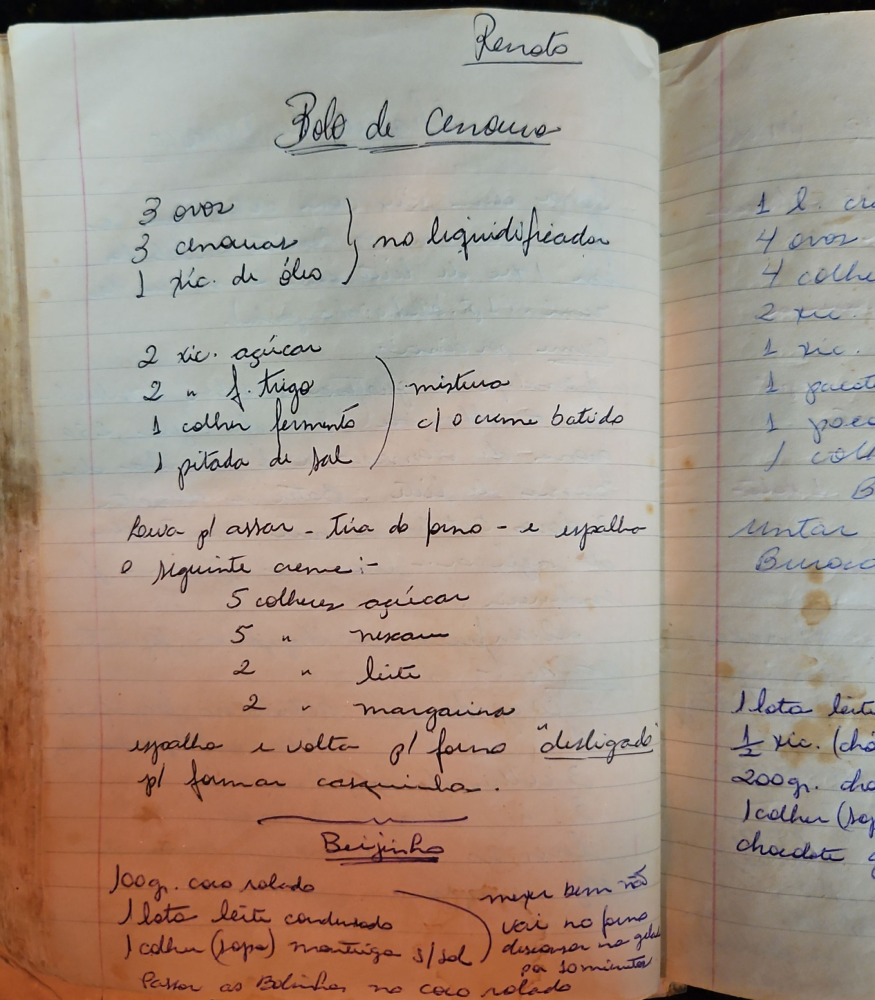 Renato
Bolo de Cenoura
3 ovos
3 cenouras
1 xíc. de óleo
no liquidificador
2 xic. açúcar
2 " f. trigo
1 colher fermento
1 pitada de sal
mistura
c/ o creme batido
Leva p/ assar - tira do forno - e espalha
o seguinte creme:-
5 colheres açúcar
5 " nescau
2 " leite
2 " margarina
espalha e volta p/ forno "desligado"
p/ formar casquinha.
Beijinho
100gr. coco ralado
1 lata leite condensado
1 colher (sopa) manteiga s/sal
mexer bem não
vai no forno
descansar na gelad
por 10 minutos
Passar as Bolinhas no coco ralado
1 l. cre
4 ovos
4 colhe
2 xic.
1 xic.
1 pacot
1
1 colh
B
untar
1 lata leite
1/2 xic. (chá
200gr. cho
1 colher (sop
chocolate